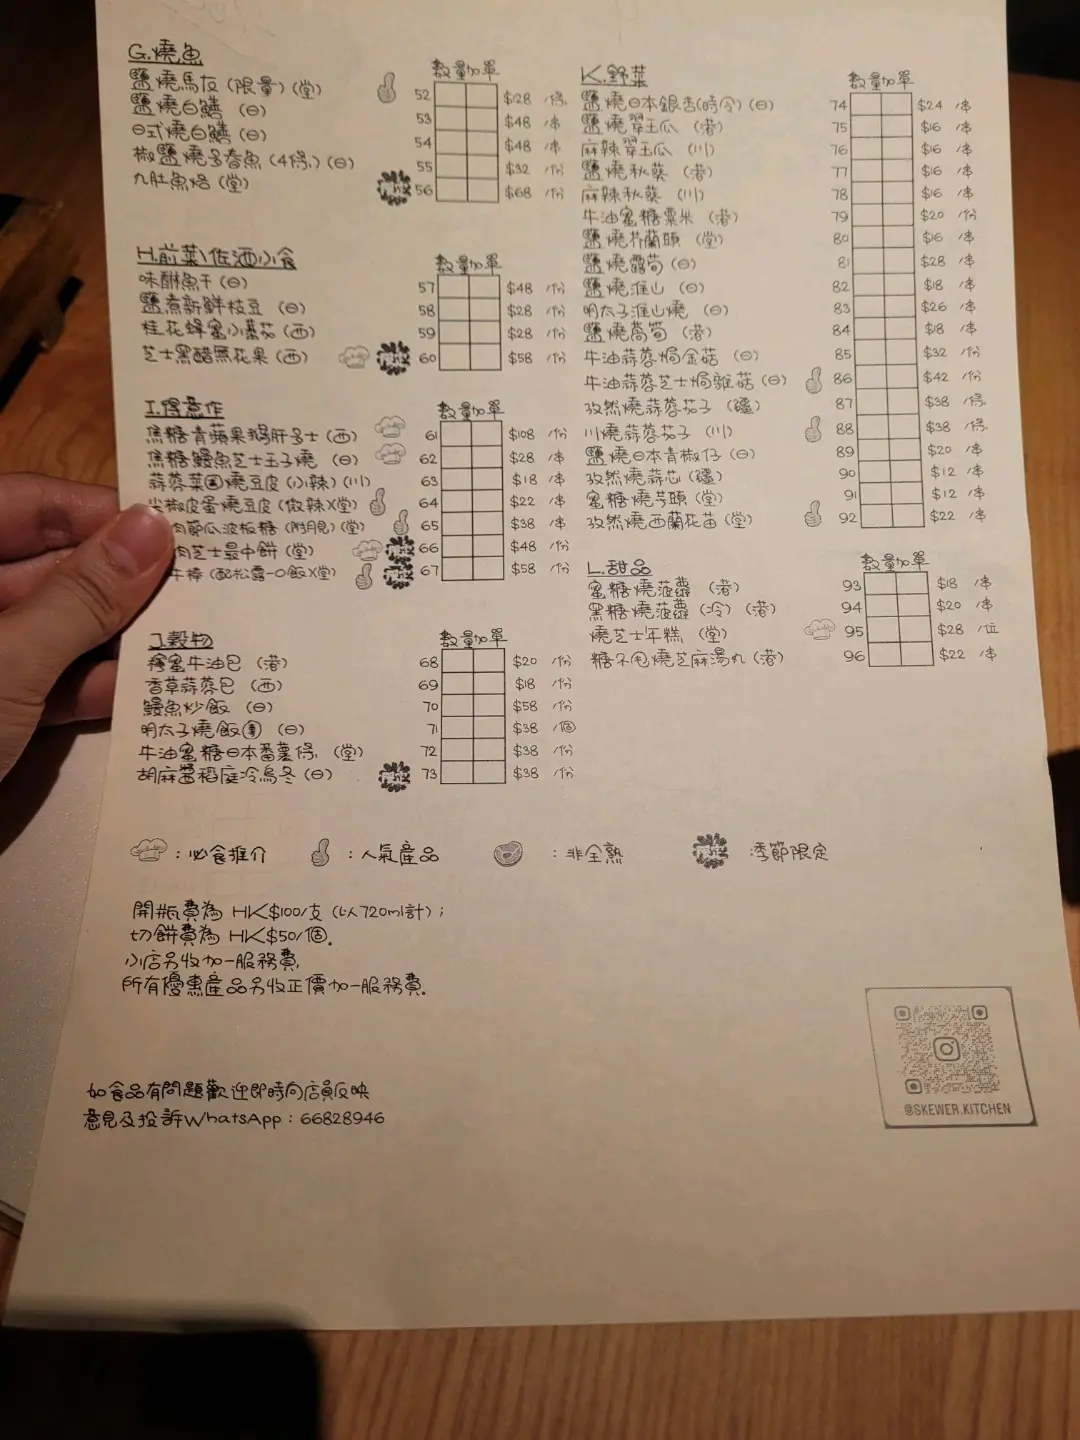 G.燒魚
數量加單
鹽燒馬友(限量)(堂) 52 $128 /條
鹽燒白鱔(日) 53 $48 /串
日式燒白鱔(日) 54 $48 /串
椒鹽燒多春魚(4條)(日) 55 $32 /份
九肚魚烙(堂) 限定 56 $68 /份
H.前菜\佐酒小食
數量加單
味醂魚干(日) 57 $48 /份
鹽煮新鮮枝豆(日) 58 $28 /份
桂花蜂蜜小蕃茄(西) 59 $28 /份
芝士黑醋無花果(西) 限定 60 $58 /份
I.得意作
數量加單
焦糖青蘋果鵝肝多士(西) 61 $108 /份
焦糖鰻魚芝士玉子燒(日) 62 $28 /串
蒜蓉菜圃燒豆皮(小辣)(川) 63 $18 /串
尖椒皮蛋燒豆皮(微辣)(堂) 64 $22 /串
肉節瓜波板糖(附月見)(堂) 65 $38 /串
肉芝士最中餅(堂) 限定 66 $48 /份
牛棒(配松露一口飯)(堂) 限定 67 $58 /份
J.穀物
數量加單
蜜牛油包(港) 68 $20 /份
香草蒜蓉包(西) 69 $18 /份
鰻魚炒飯(日) 70 $58 /份
明太子燒飯團(日) 71 $38 /個
牛油蜜糖日本番薯條(堂) 72 $38 /份
胡麻醬稻庭冷烏冬(日) 限定 73 $38 /份
K.野菜
數量加單
鹽燒日本銀杏(時令)(日) 74 $24 /串
鹽燒翠玉瓜(港) 75 $16 /串
麻辣翠玉瓜(川) 76 $16 /串
鹽燒秋葵(港) 77 $16 /串
麻辣秋葵(川) 78 $16 /串
牛油蜜糖粟米(港) 79 $20 /份
鹽燒芥蘭頭(堂) 80 $16 /串
鹽燒露荀(日) 81 $28 /串
鹽燒淮山(日) 82 $18 /串
明太子淮山燒(日) 83 $26 /串
鹽燒萵荀(港) 84 $18 /串
牛油蒜蓉焗金菇(日) 85 $32 /份
牛油蒜蓉芝士焗雜菇(日) 86 $42 /份
孜然燒蒜蓉茄子(疆) 87 $38 /條
川燒蒜蓉茄子(川) 88 $38 /條
鹽燒日本青椒仔(日) 89 $20 /串
孜然燒蒜芯(疆) 90 $12 /串
蜜糖燒芋頭(堂) 91 $12 /串
孜然燒西蘭花苗(堂) 92 $22 /串
L.甜品
數量加單
蜜糖燒菠蘿(港) 93 $18 /串
黑糖燒菠蘿(冷)(港) 94 $20 /串
燒芝士年糕(堂) 95 $28 /位
糖不甩燒芝麻湯丸(港) 96 $22 /串
:必食推介 :人氣產品 :非全熟 限定 :季節限定
開瓶費為 HK$100/支(以720ml計);
切餅費為 HK$50/個.
小店另收加一服務費,
所有優惠產品另收正價加一服務費.
@SKEWER.KITCHEN
如食品有問題歡迎即時向店員反映
意見及投訴WhatsApp:66828946